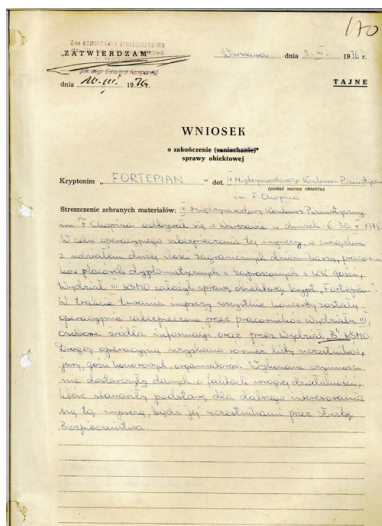 170
Z-ca KOMENDANTA STOŁECZNEGO MO
„ZATWIERDZAM"
Warszawa dnia 9.III. 1976 r.
dnia 10.III. 1976.
TAJNE
WNIOSEK
o zakończenie (zaniechanie)*
sprawy obiektowej
Kryptonim „ FORTEPIAN " dot. Międzynarodowy Konkurs Pianistyczny
(podać nazwę obiektu)
im F. Chopina
Streszczenie zebranych materiałów: Międzynarodowy Konkurs Pianistyczny
im F. Chopina odbywał się w Warszawie w dniach 6-30. X 1975
W celu operacyjnego zabezpieczenia tej imprezy, w związku
z udziałem dużej ilości zagranicznych dziennikarzy, pracowni
ków placówek dyplomatycznych i zaproszonych z KK gości,
Wydział III KSMO założył sprawę obiektową krypt. „Fortepian"
W trakcie trwania imprezy wszystkie koncerty zostały
operacyjnie zabezpieczone przez pracowników Wydziału III,
osobowe źródła informacji oraz przez Wydział "B" KSMO.
Drogą operacyjną uzyskano również listy uczestników,
jury, gości honorowych, organizatorów. Wykonane czynności
nie dostarczyły danych o faktach wrogiej działalności,
które stanowiły podstawę dla dalszego interesowania
się tą imprezą, bądź jej uczestnikami przez Służbę
Bezpieczeństwa.